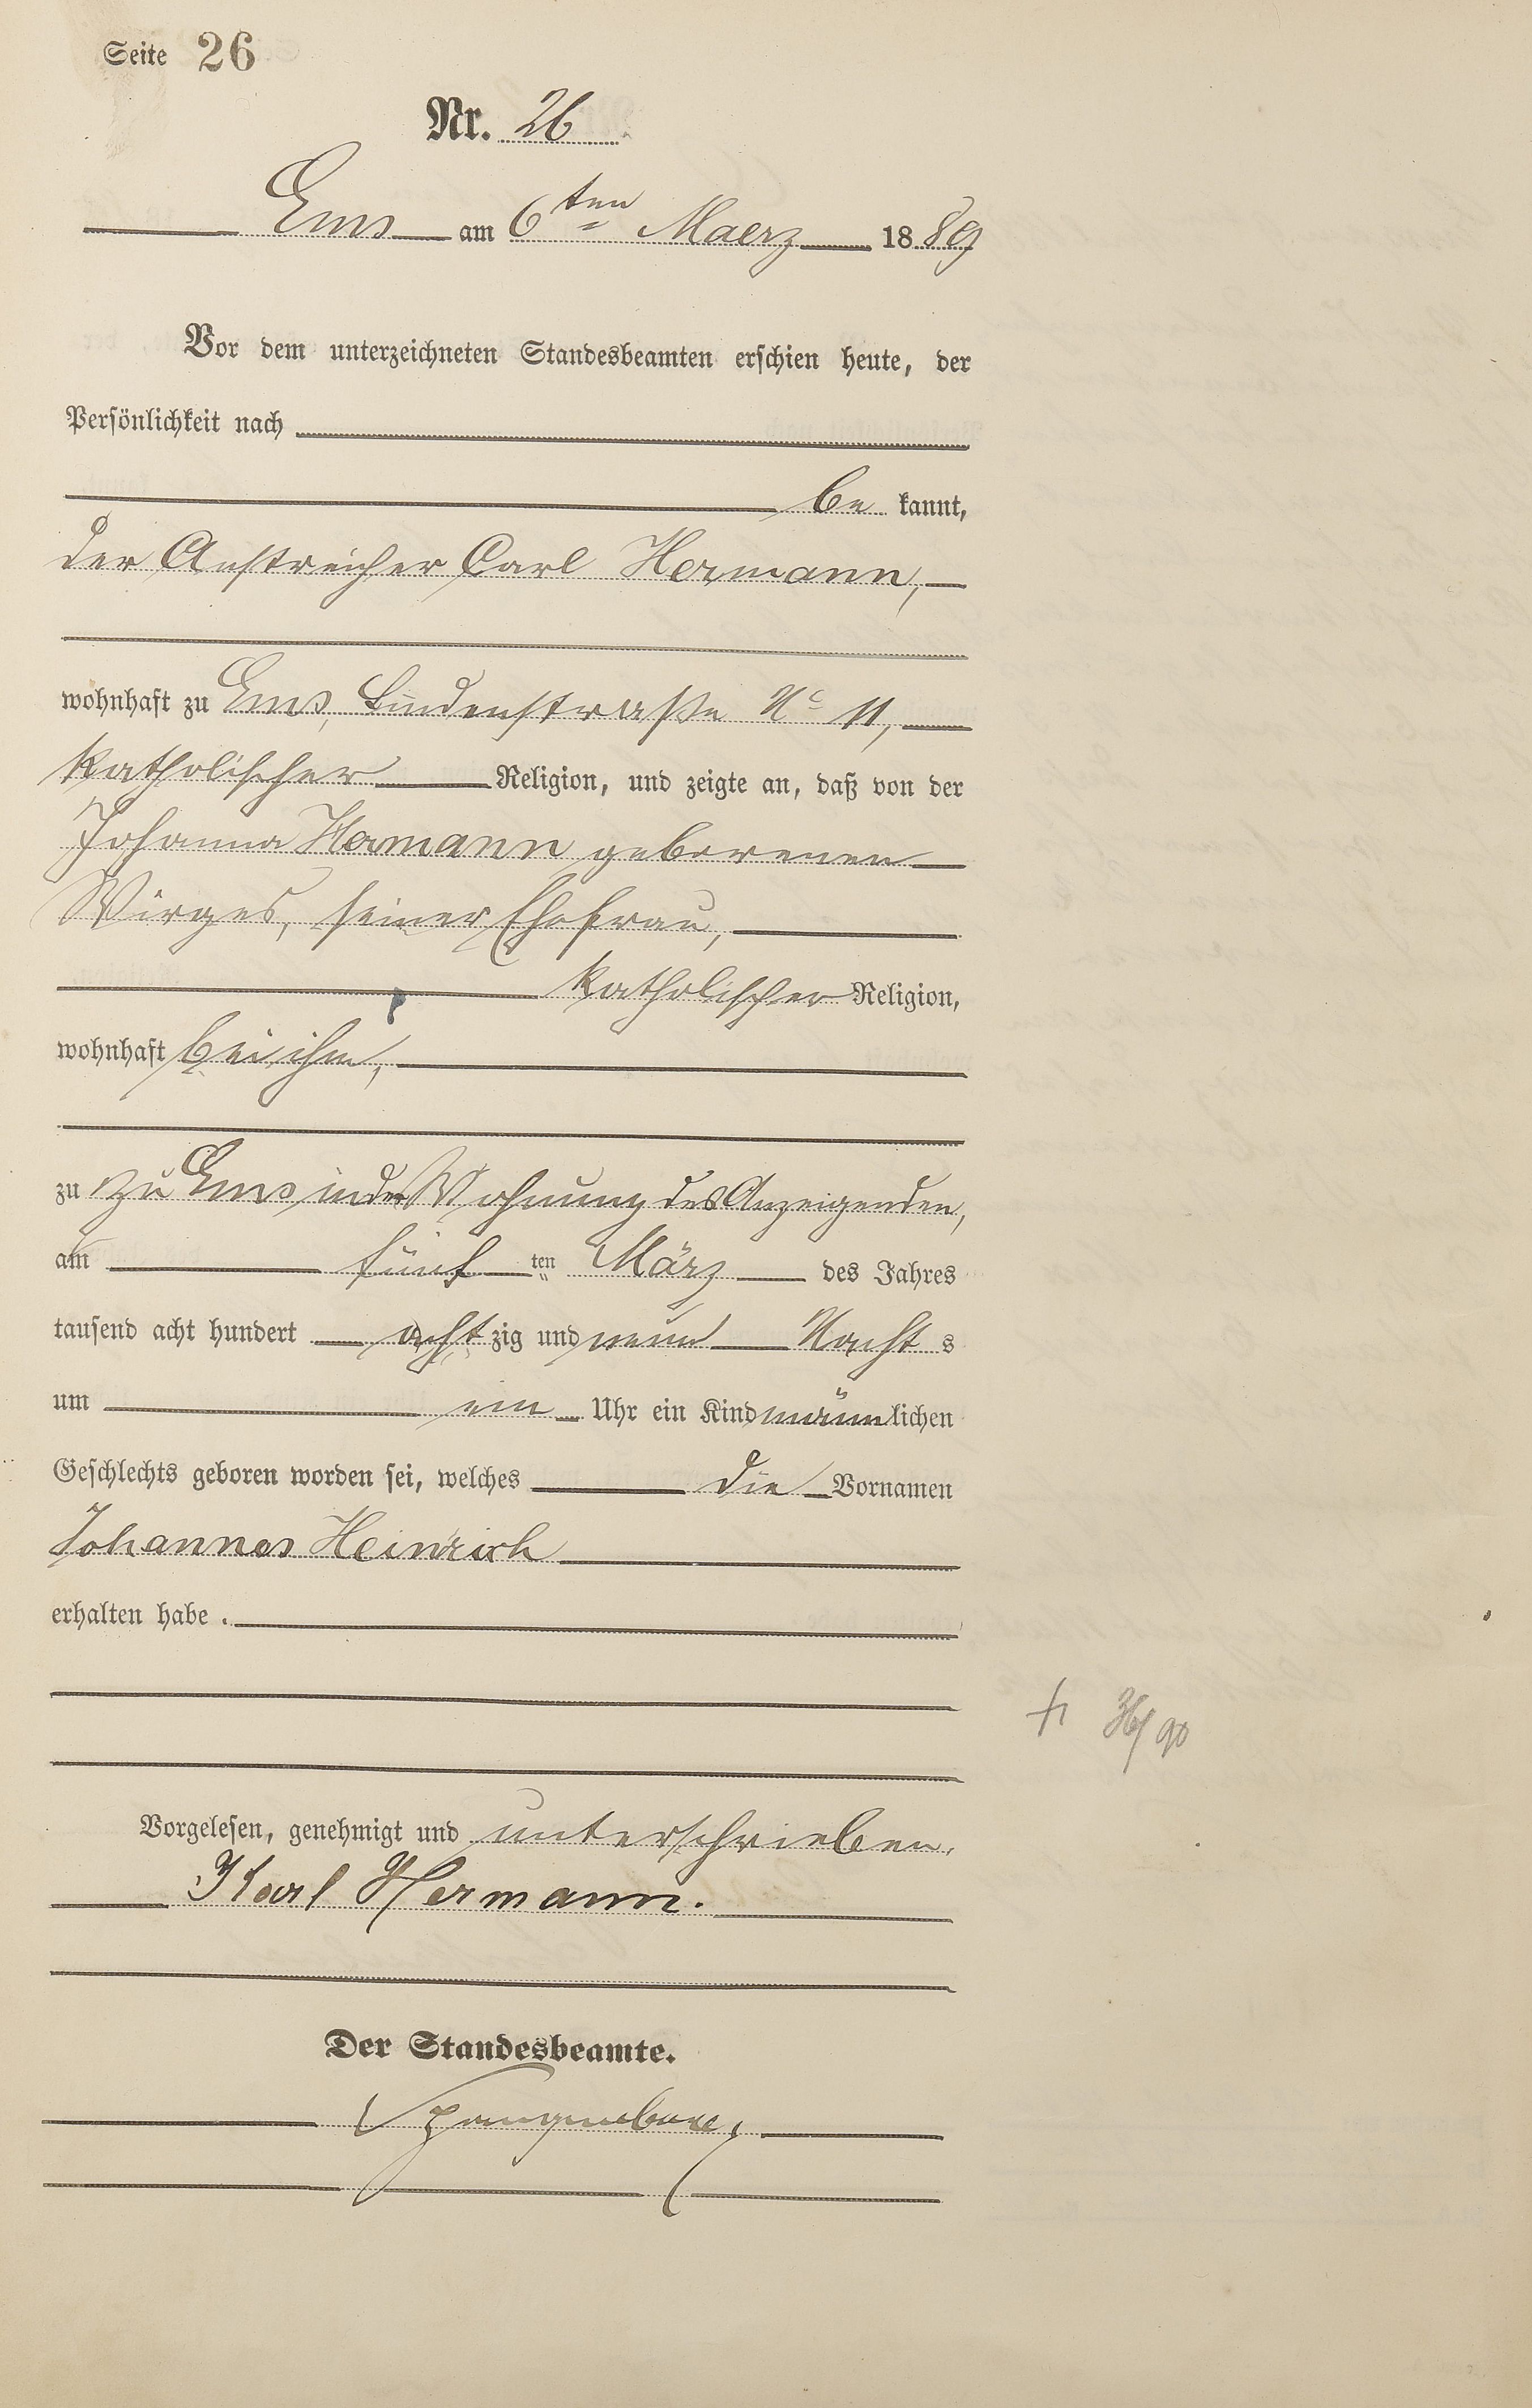 Seite 26
Nr. 26
Ems am 6ten Maerz 1889
Vor dem unterzeichneten Standesbeamten erschien heute, der
Persönlichkeit nach
be kannt,
der Anstreicher Carl Hermann,
wohnhaft zu Ems, Lindenstraße No 11,
katholischer Religion, und zeigte an, daß von der
Johanna Hermann geborenen
Wirges, seiner Ehefrau,
katholischer Religion,
wohnhaft bei ihm,
zu zu Ems in der Wohnung des Anzeigenden,
am fünf ten März des Jahres
tausend acht hundert acht zig und neun Nacht s
um ein Uhr ein Kind männlichen
Geschlechts geboren worden sei, welches die Vornamen
Johannes Heinrich
erhalten habe.
† 36/90
Vorgelesen, genehmigt und unterschrieben.
Karl Hermann.
Der Standesbeamte.
Spangenberg